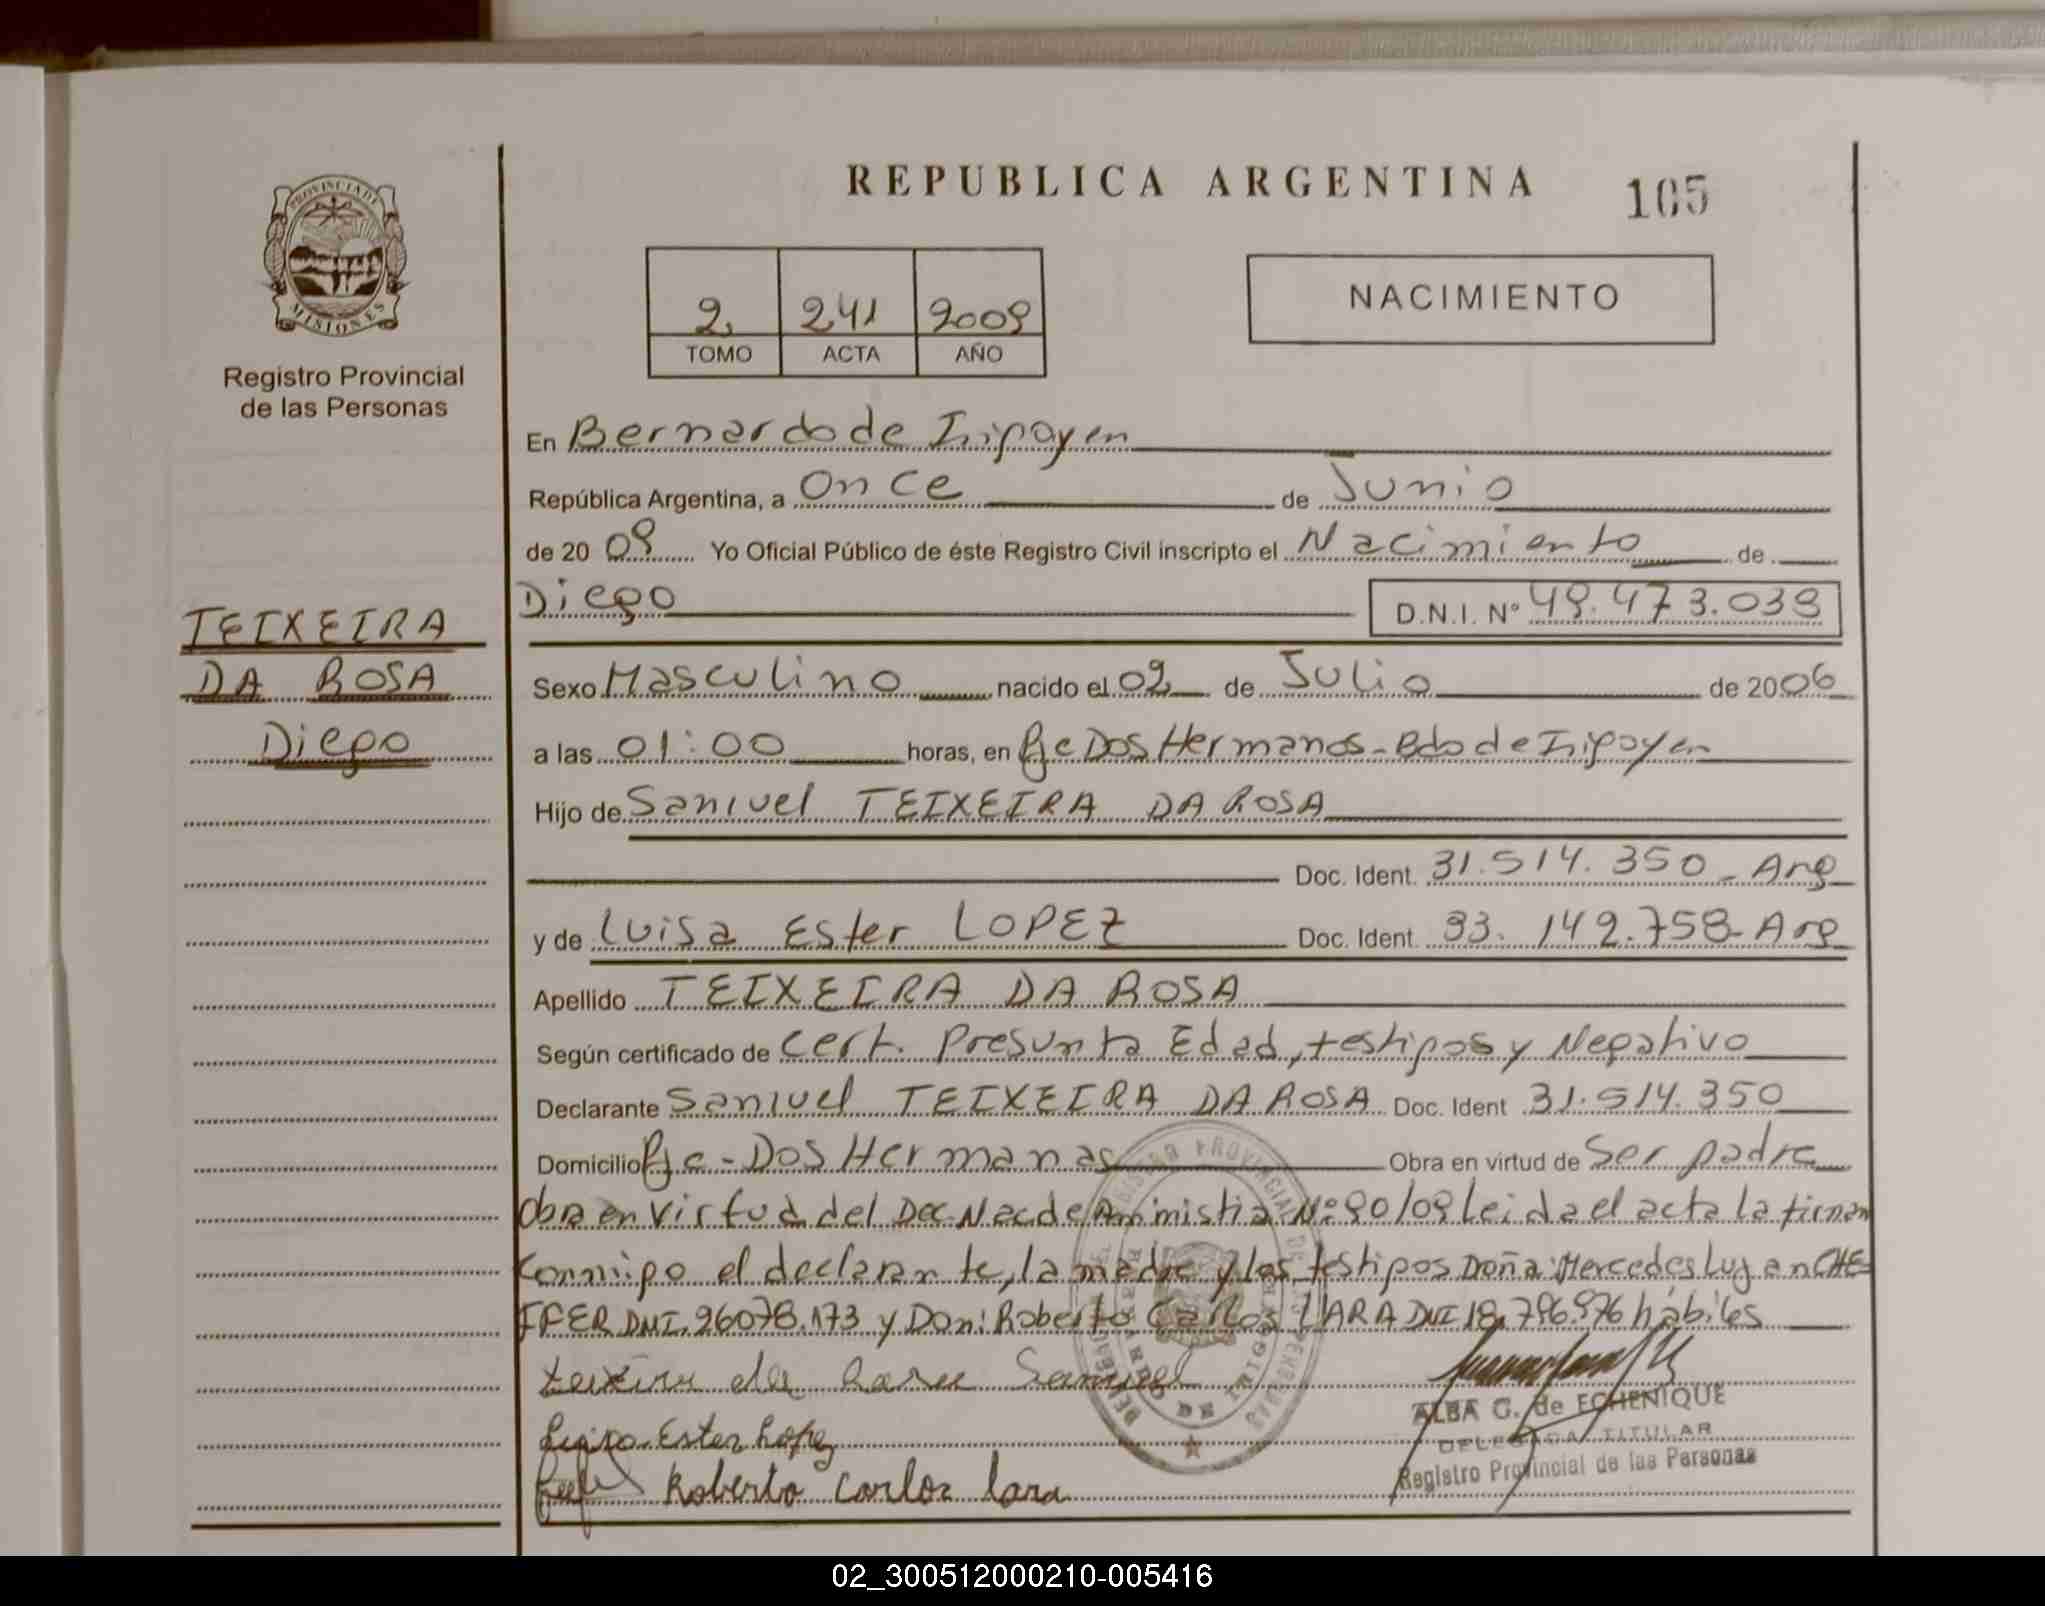 REPUBLICA ARGENTINA
105
PROVINCIA DE
MISIONES
Registro Provincial
de las Personas
2 241 2009
TOMO ACTA AÑO
NACIMIENTO
En Bernardo de Irigoyen
República Argentina, a Once de Junio
de 20 09 Yo Oficial Público de éste Registro Civil inscripto el Nacimiento de
Diego D.N.I. Nº 49.473.039
TEIXEIRA
DA ROSA
Diego
Sexo Masculino nacido el 02 de Julio de 2006
a las 01:00 horas, en Pje Dos Hermanos - Bdo de Irigoyen
Hijo de Samuel TEIXEIRA DA ROSA
Doc. Ident. 31.514.350 - Arg
y de Luisa Ester LOPEZ Doc. Ident. 93.149.758 - Arg
Apellido TEIXEIRA DA ROSA
Según certificado de Cert. Presunta Edad, testigos y Negativo
Declarante Samuel TEIXEIRA DA ROSA Doc. Ident 31.514.350
Domicilio Pje - Dos Hermanas Obra en virtud de Ser padre
Obra en virtud del Dec. Nac de Aministia Nº 90/09 Leida el acta la firman
Conmigo el declarante, la madre y los testigos Doña: Mercedes Lujan CHE-
FFER DNI. 26078.173 y Don: Roberto Carlos LARA DNI 18.796.976 hábiles
Teixeira da Rosa Samuel
Luisa Ester Lopez
Roberto Carlos Lara
ALBA G. de ECHENIQUE
DELEGADA TITULAR
Registro Provincial de las Personas
02_300512000210-005416